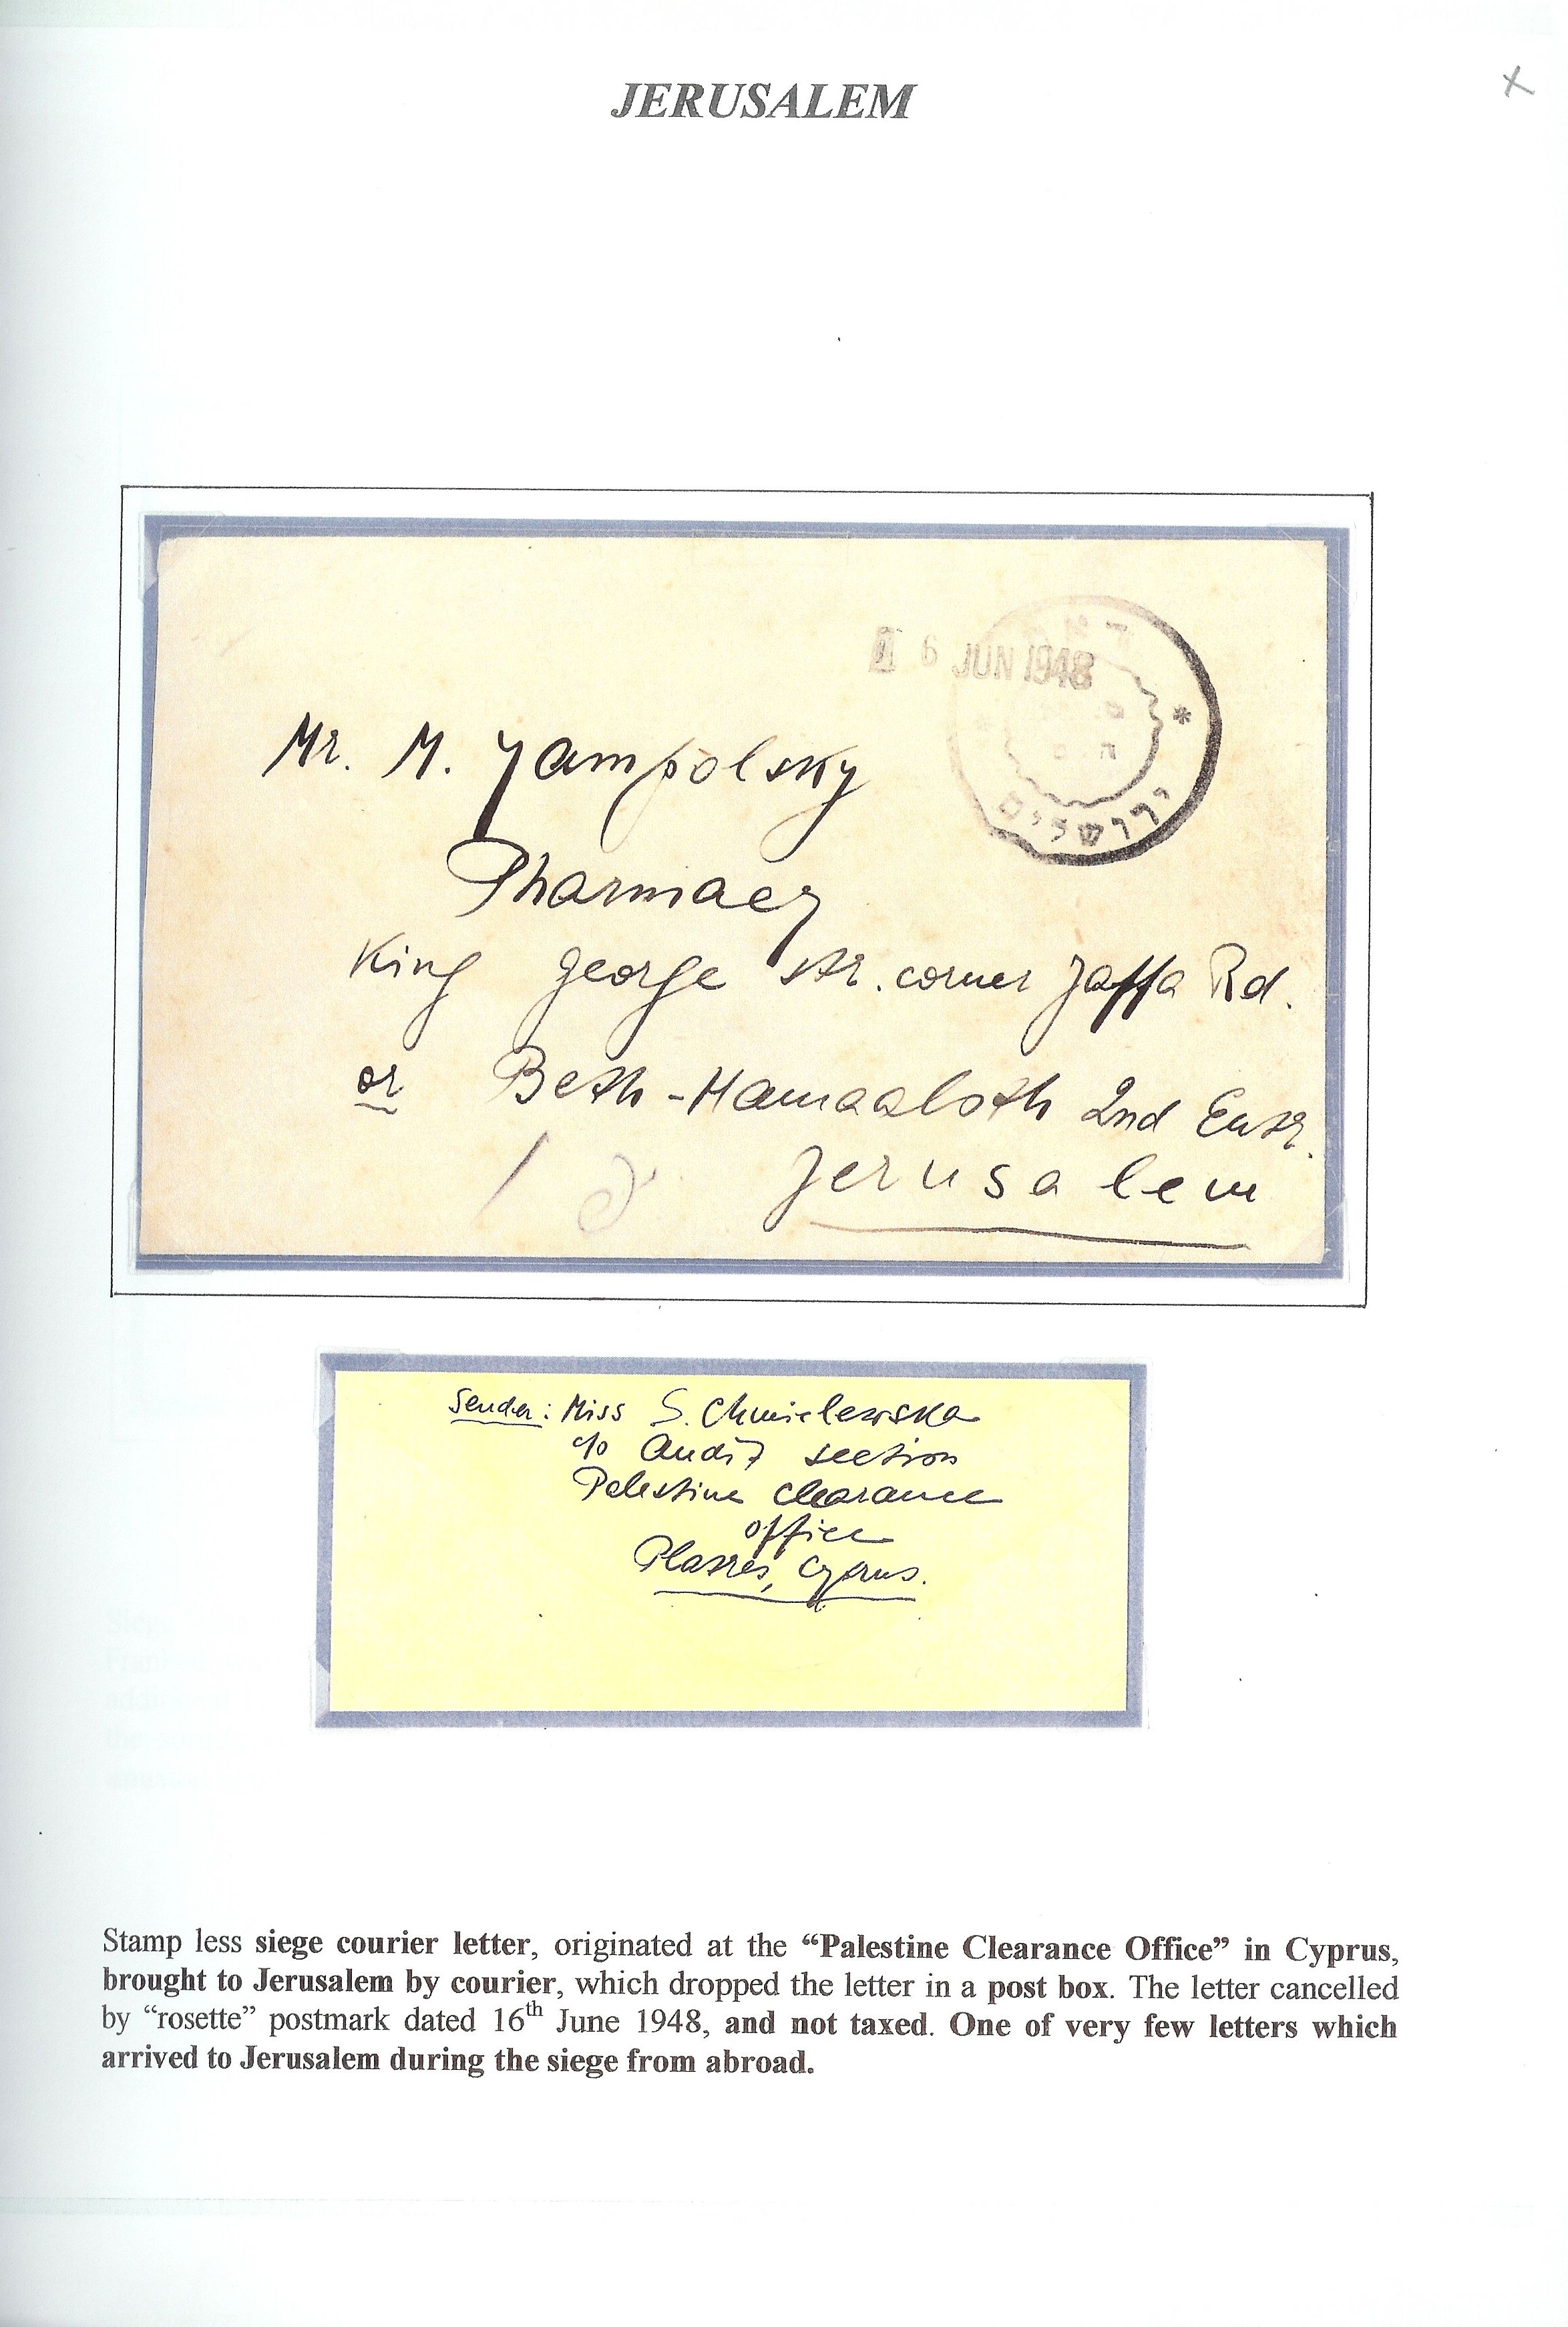 JERUSALEM
x
16 JUN 1948
ירושלים
Mr. M. Yampolsky
Pharmacy
King George str. corner Jaffa Rd.
or Beth-Hamaaloth 2nd Entr.
Jerusalem
Sender: Miss S. Chmielewska
c/o Audit section
Palestine Clearance
Office
Platres, Cyprus.
Stamp less siege courier letter, originated at the “Palestine Clearance Office” in Cyprus,
brought to Jerusalem by courier, which dropped the letter in a post box. The letter cancelled
by “rosette” postmark dated 16th June 1948, and not taxed. One of very few letters which
arrived to Jerusalem during the siege from abroad.